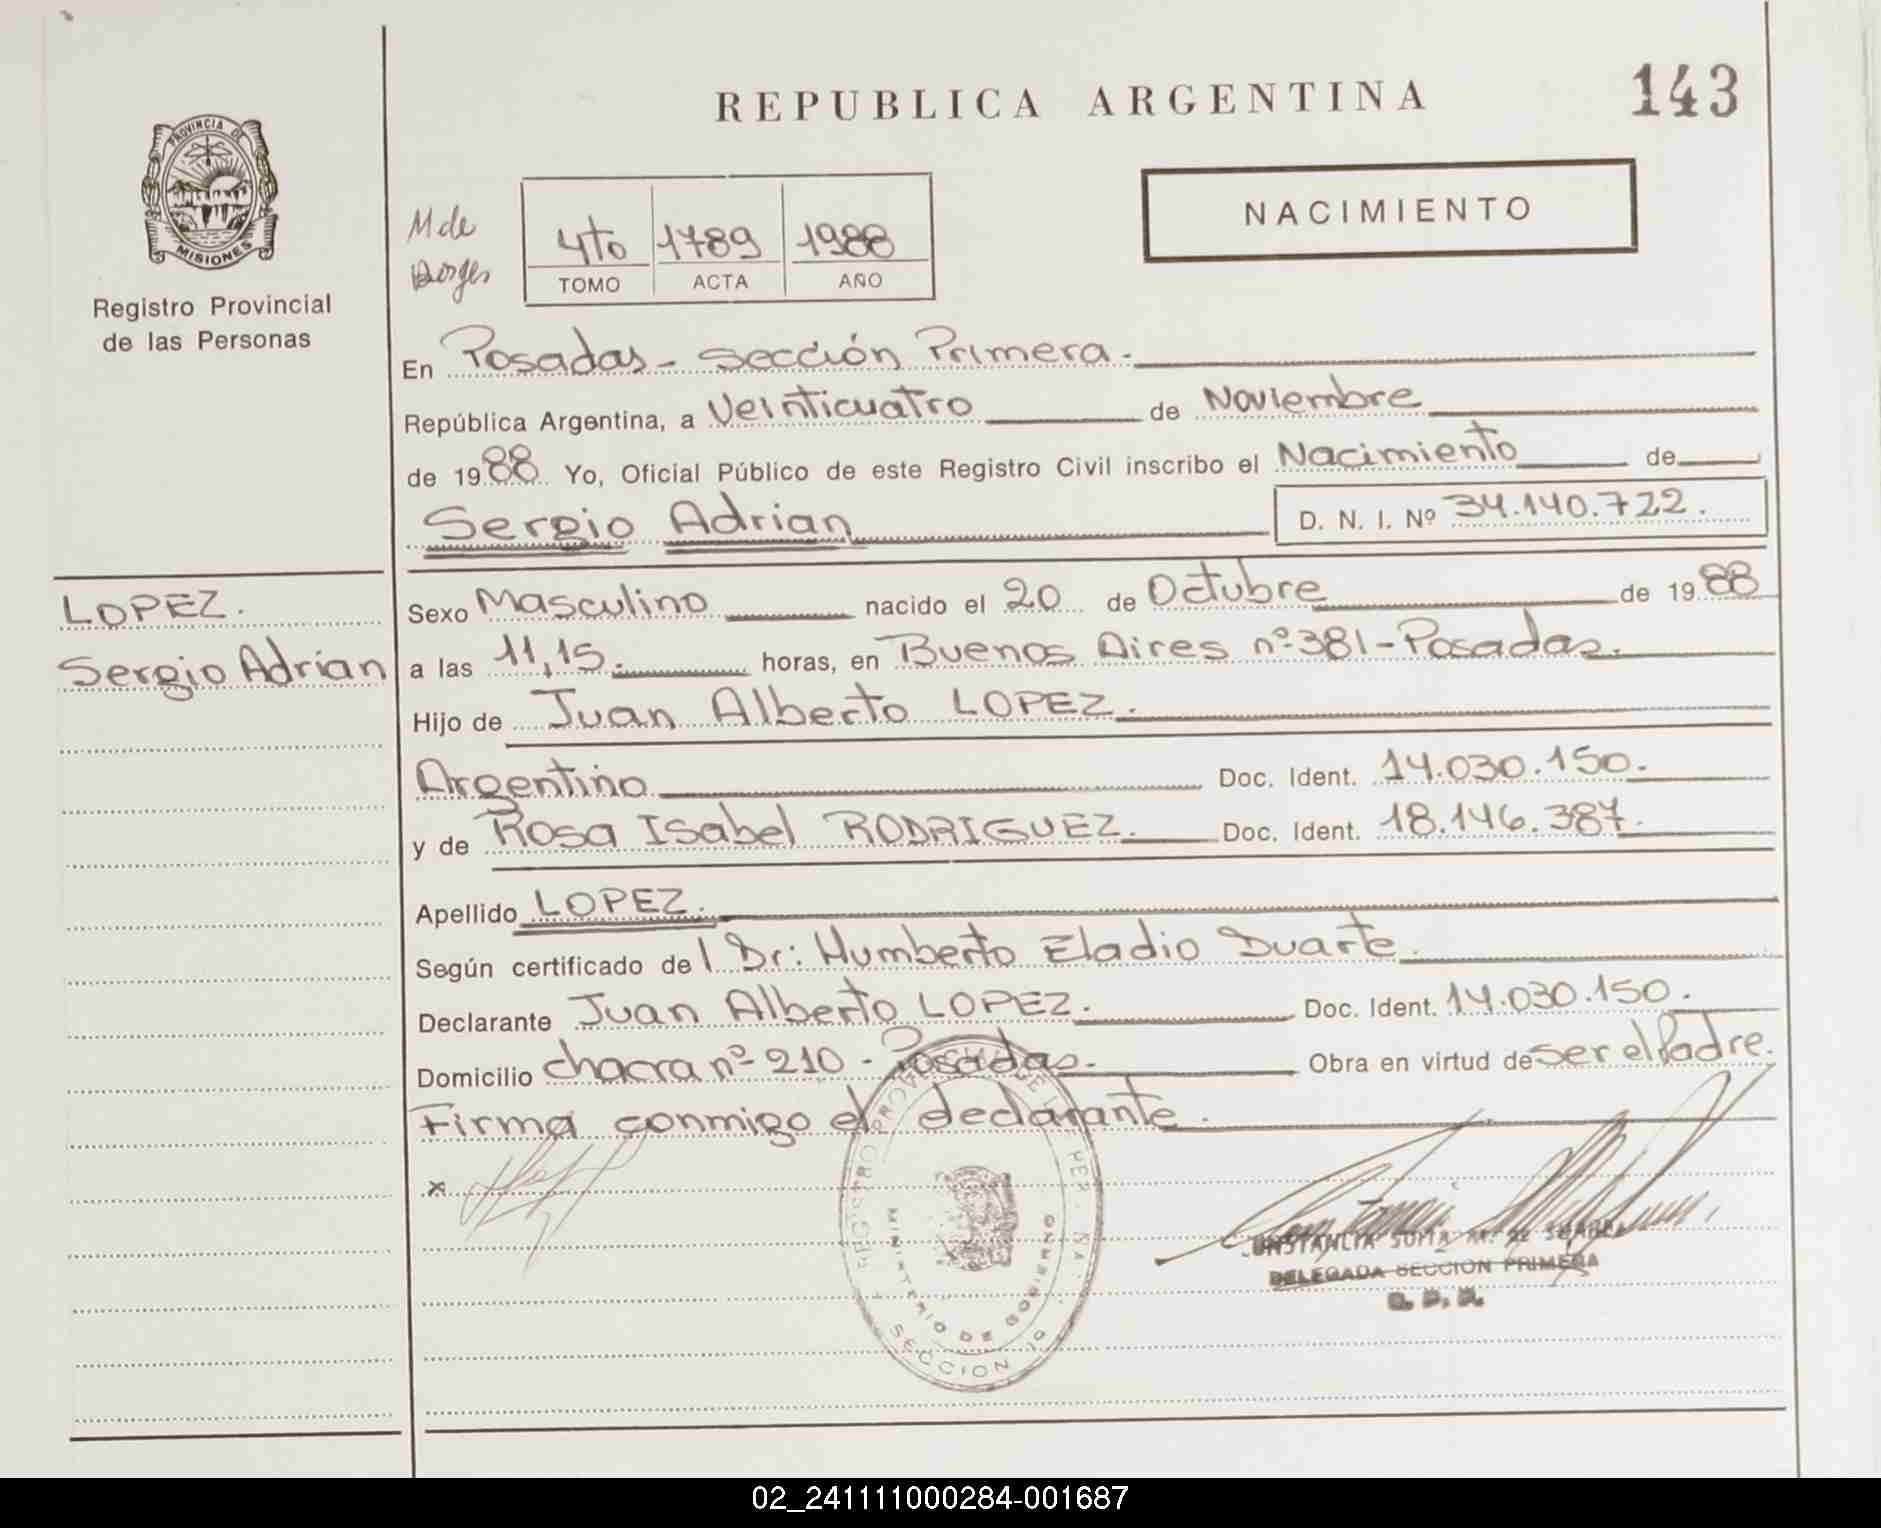 REPUBLICA ARGENTINA
143
PROVINCIA DE
MISIONES
Registro Provincial
de las Personas
M de
Borges
4to 1789 1988
TOMO ACTA AÑO
NACIMIENTO
En Posadas - Sección Primera.
República Argentina, a Veinticuatro de Noviembre
de 1988 Yo, Oficial Público de este Registro Civil inscribo el Nacimiento de
Sergio Adrian D. N. I. Nº 34.140.722.
LOPEZ.
Sergio Adrian
Sexo Masculino nacido el 20 de Octubre de 1988
a las 11,15. horas, en Buenos Aires nº 381 - Posadas.
Hijo de Juan Alberto LOPEZ.
Argentino Doc. Ident. 14.030.150.
y de Rosa Isabel RODRIGUEZ. Doc. Ident. 18.146.387.
Apellido LOPEZ.
Según certificado del Dr: Humberto Eladio Duarte.
Declarante Juan Alberto LOPEZ. Doc. Ident. 14.030.150.
Domicilio chacra nº 210 - Posadas. Obra en virtud de ser el Padre.
Firma conmigo el declarante.
x
MINISTERIO DE GOBIERNO
SECCION 1º
DELEGADA SECCION PRIMERA
02_241111000284-001687